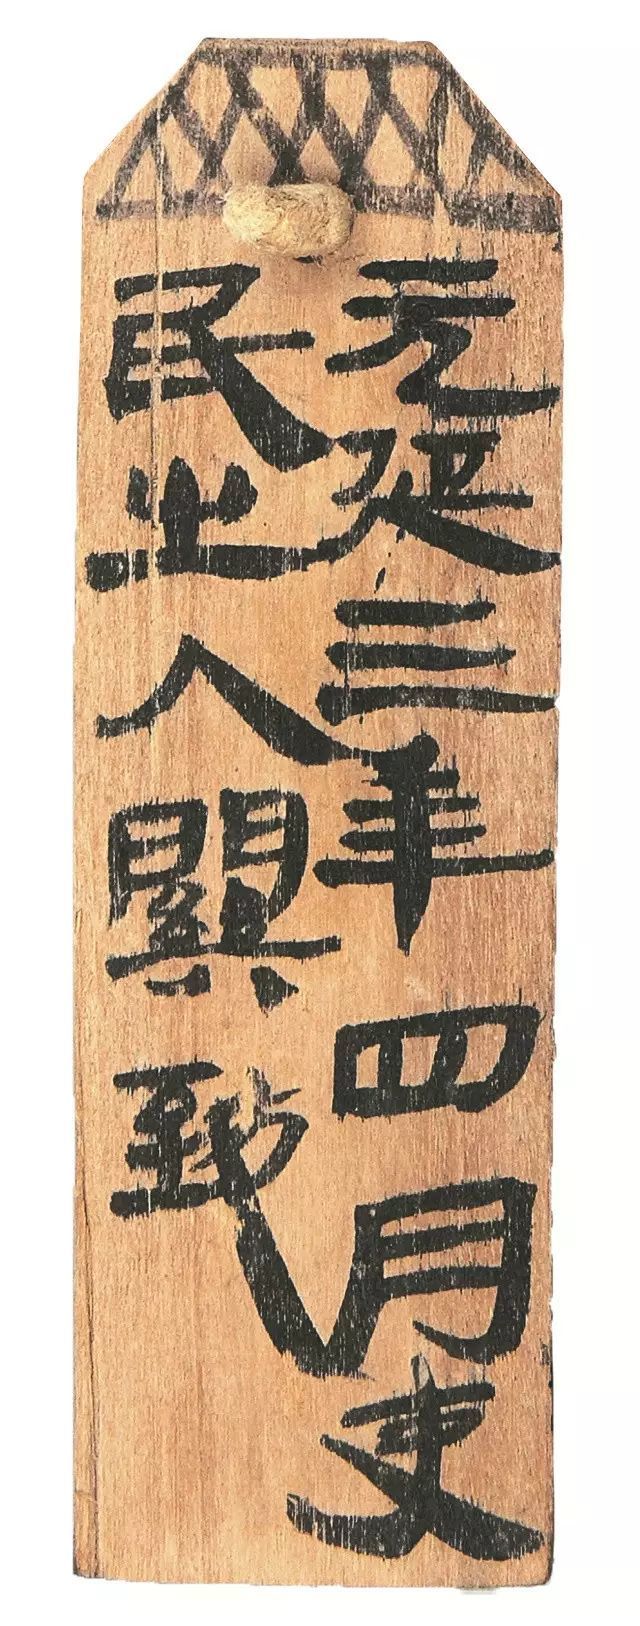 元延三年四月吏
民出入關致